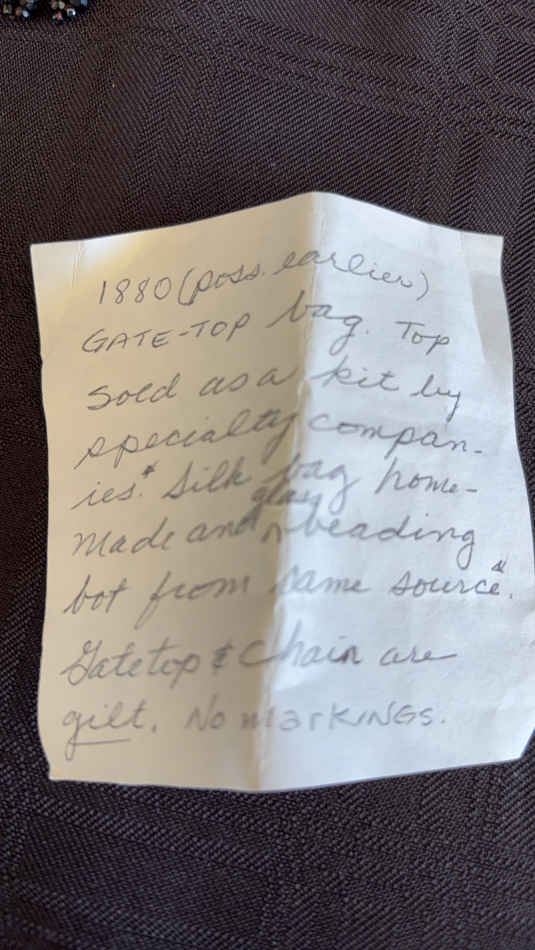 1880 (poss. earlier)
GATE-TOP bag. Top
sold as a kit by
specialty compan-
ies.* Silk bag home-
glass
made and ^ beading
bot from same source.*
Gatetop & Chain are
gilt. No markings.